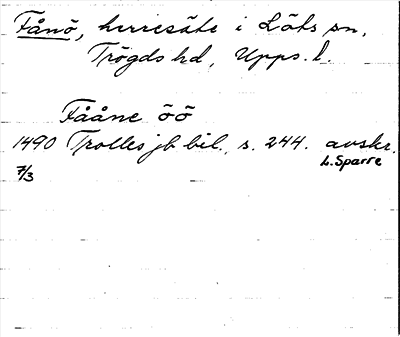 Fånö, herresäte i Löts sn,
Trögds hd, Upps. l.
Fååne öö
1490 Trolles jb bil., s. 244. avskr.
7/3 L. Sparre